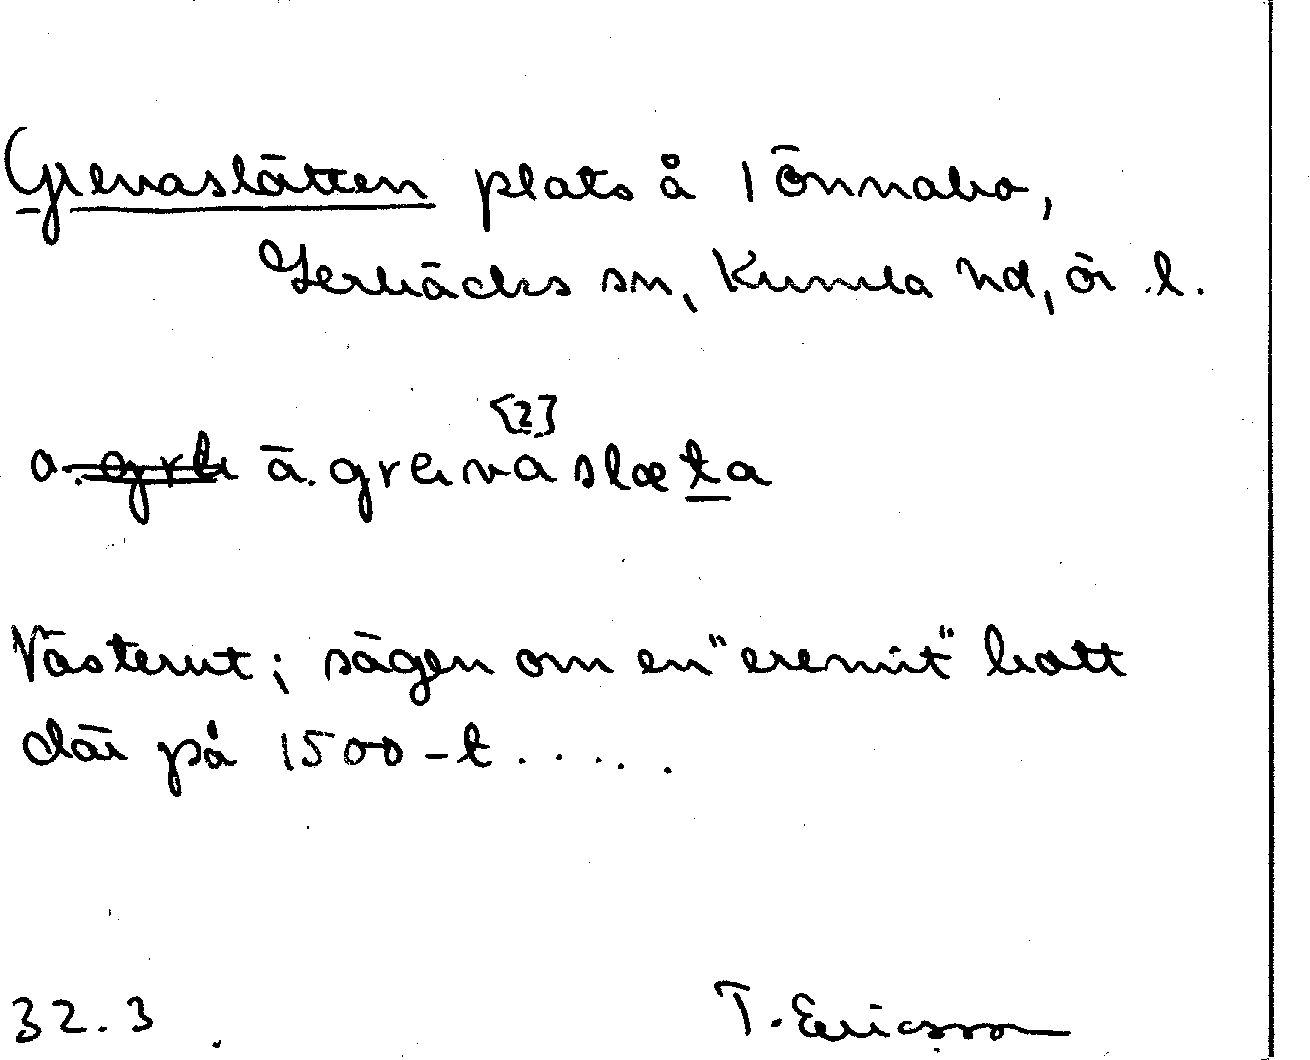 Grevaslätten plats å 1 Önnabo,
Lerbäcks sn, Kumla hd, ör l.
[2]
a. grb ā. greivaslæta
Västerut; sägen om en "eremit" bott
där på 1500-t.....
32.3
T. Ericsson